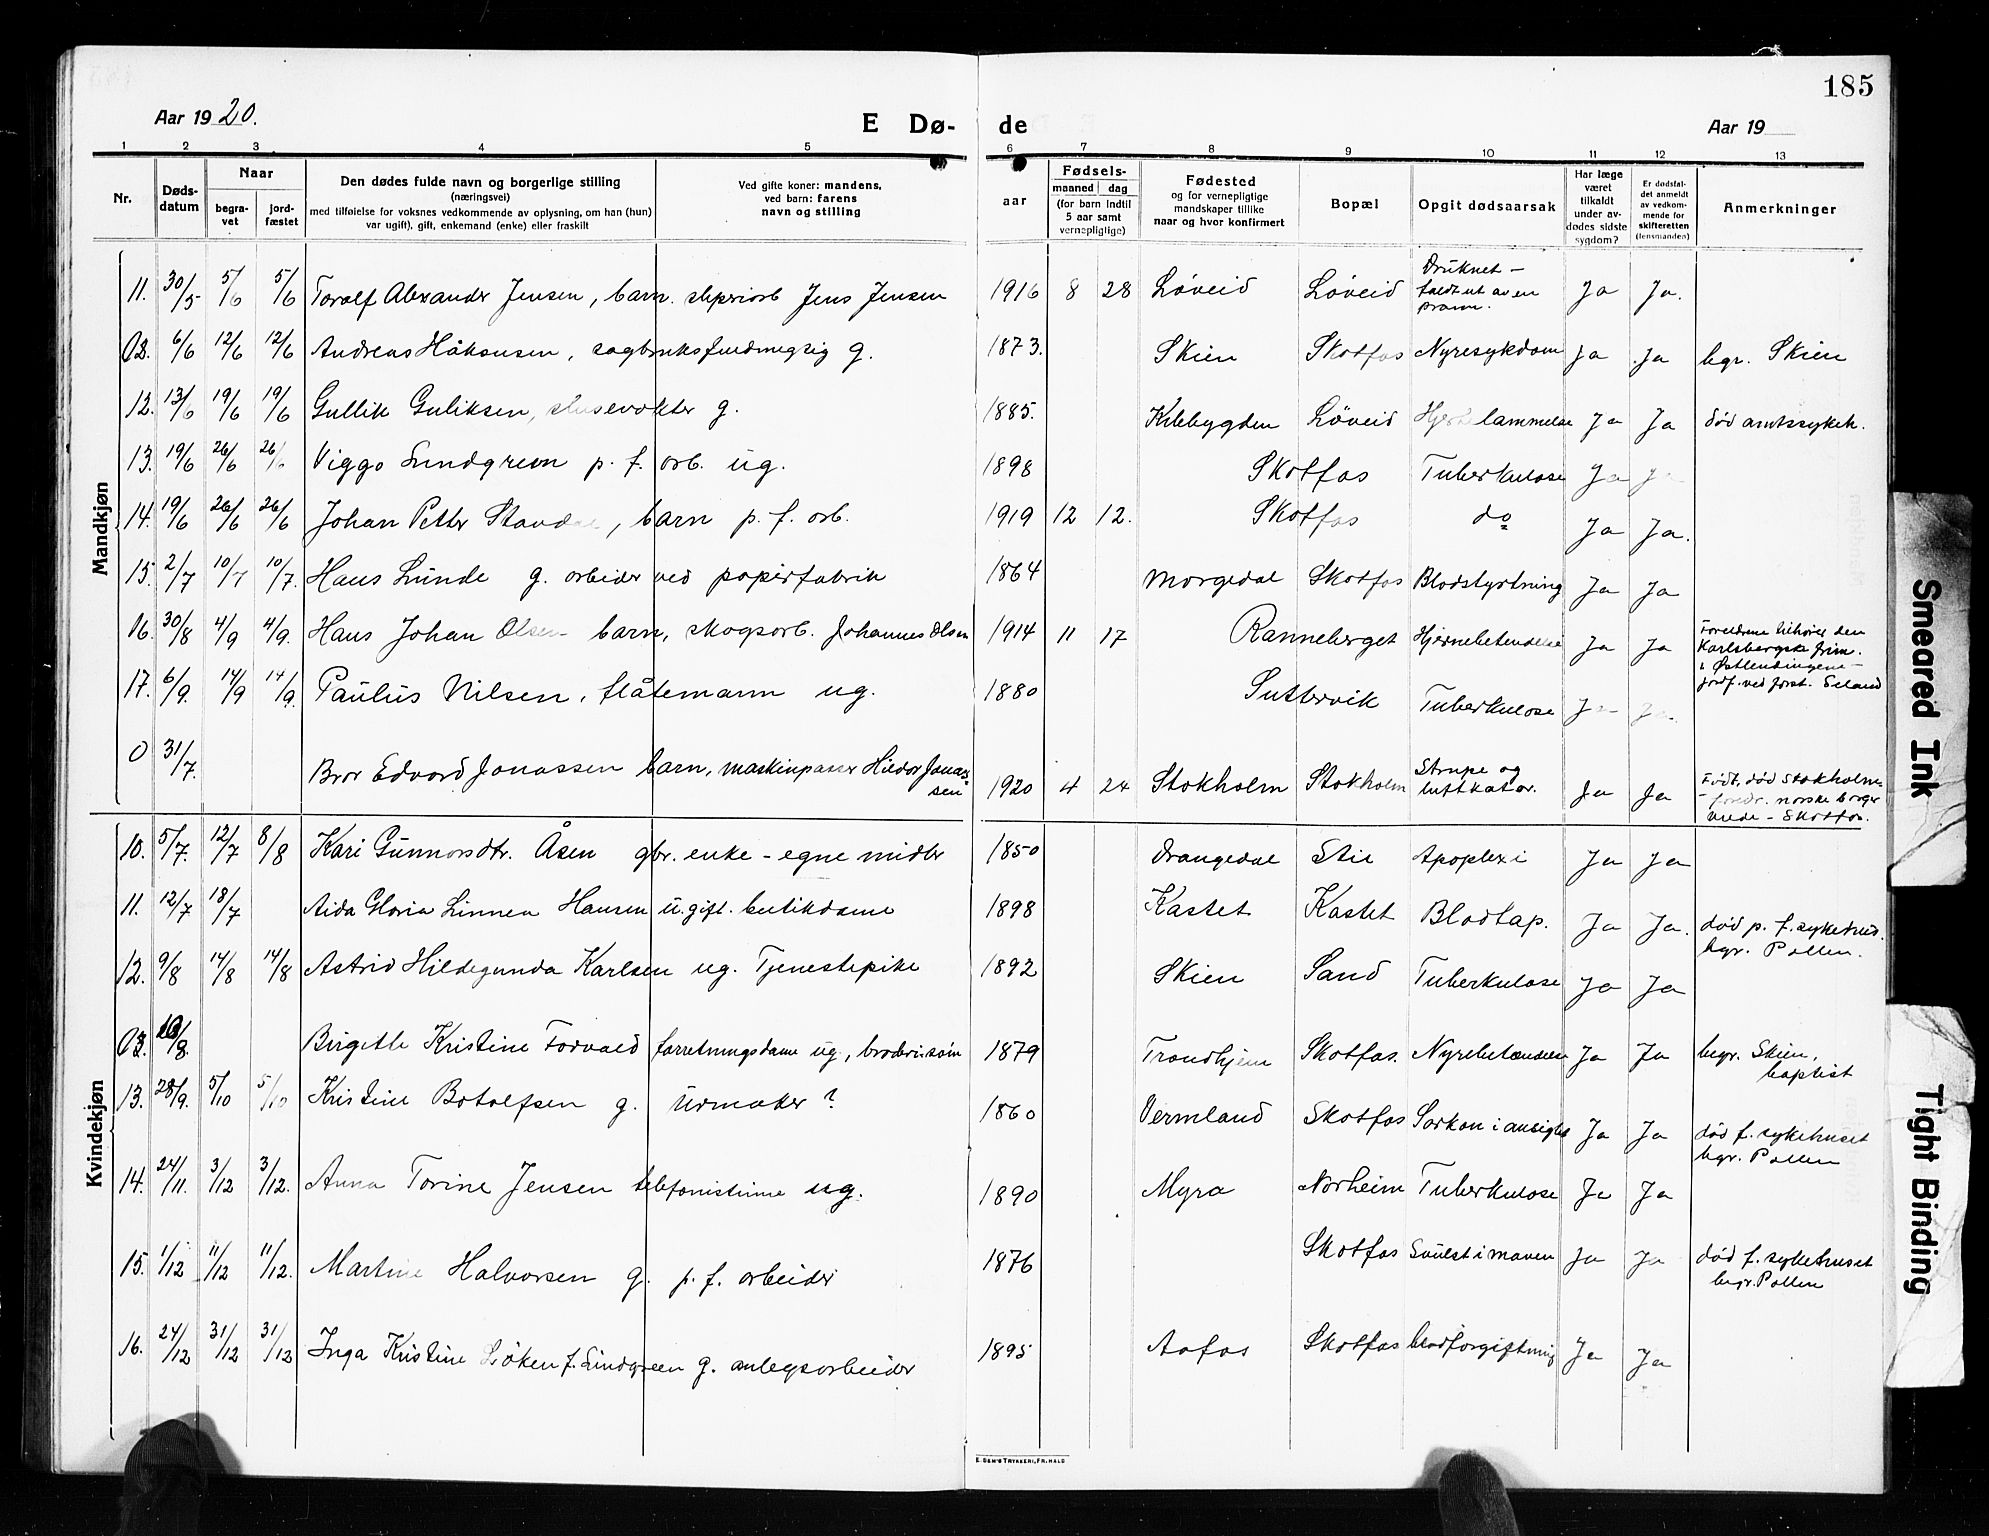 185
Aar 1920.
E Dø- de
Aar 19
1 2 3 4 5 6 7 8 9 10 11 12 13
Nr.
Døds-
datum
Naar
begra-
vet
jord-
fæstet
Den dødes fulde navn og borgerlige stilling
(næringsvei)
med tilføielse for voksnes vedkommende av oplysning, om han (hun)
var ugift), gift, enkemand (enke) eller fraskilt
Ved gifte koner: mandens,
ved barn: farens
navn og stilling
aar
Fødsels-
maaned dag
(for barn indtil
5 aar samt
vernepligtige)
Fødested
og for vernepligtige
mandskaper tillike
naar og hvor konfirmert
Bopæl
Opgit dødsaarsak
Har læge
været
tilkaldt
under av-
dødes sidste
sygdom?
Er dødsfal-
det anmeldt
av vedkom-
mende for
skifteretten
(lensmanden)
Anmerkninger
Mandkjøn
11. 30/5 5/6 5/6 Toralf Alexander Jensen, barn. sliperiarb Jens Jensen 1916 8 28 Løveid Løveid Druknet – faldt ut av en pram. Ja Ja.
02. 6/6 12/6 12/6 Andreas Håkonsen, sagbruksfuldmegtig g. 1873. Skien Skotfos Nyresykdom Ja Ja begr. Skien
12. 13/6 19/6 19/6 Gullik Guliksen, slusevokter g. 1885. Kilebygden Løveid Hjertelammelse Ja Ja død amtssykeh.
13. 19/6 26/6 26/6 Viggo Lundgreen p. f. arb. ug. 1898 Skotfos Tuberkulose Ja Ja
14. 19/6 26/6 26/6 Johan Petter, barn p. f. arb. 1919 12 12. Skotfos do Ja Ja.
15. 2/7 10/7 10/7. Hans Lunde g. arbeider ved papirfabrik 1864 Morgedal Skotfos Blodstyrtning Ja Ja
16. 30/8 4/9 4/9. Hans Johan Olsen barn, skogsarb. Johannes Olsen 1914 11 17 Ranneberget Hjernebetendelse Ja Ja Foreldrene tilhører den
Karlsbergske frim.
jordf. ved forst. Seland
17. 6/9. 14/9 14/9. Paulus Nilsen, flåtemann ug. 1880 Suttervik Tuberkulose Ja Ja
0 31/7. Bror Edvard Jonassen barn, maskinpasser Hildor Jonas-
sen 1920 4 24 Stokholm Stokholm Strupe og luftkatar. Ja Ja Født, død Stokholm
– foreldr. norske borger
– Skotfos.
Kvindekjøn
10. 5/7. 12/7 8/8 Kari Gunnorsdtr. Åsen gbr. enke – egne midler 1850 Drangedal Stie Apoplexi Ja Ja
11. 12/7 18/7 Aida Gloria Linnea Hansen u. gift. butikdame 1898 Kastet Kastet Blodtap. Ja Ja. død p. f. sykehus.
begr. Pollen.
12. 9/8 14/8 14/8 Astrid Hildegunda Karlsen ug. Tjenestepike 1892 Skien Sand Tuberkulose Ja Ja
03. /8. Birgitte Kristine Forvald forretningsdame ug., broderi, søm 1879 Trondhjem Skotfos. Nyrebetændelse Ja Ja begr. Skien,
baptist
13. 28/9. 5/10 5/10 Kristine Botolfsen g. Urmaker? 1860 Vermland Skotfos Sarkom i ansigtet Ja Ja død f. sykehuset
begr. Pollen
14. 24/11. 3/12 3/12. Anna Torine Jensen telefonistinne ug. 1890 Myra Norheim Tuberkulose Ja Ja
15. 1/12 11/12 11/12. Martine Halvorsen g. p. f. arbeider 1876 Skotfos Svulst i maven Ja Ja død f. sykehuset
begr. Pollen
16. 24/12 31/12 31/12 Inga Kristine Løken f. Lindgreen g. anlegsarbeider 1895 Aafos Skotfos blodforgiftning Ja Ja
E. SEM'S TRYKKERI, FR.HALD
Smeared Ink
Tight Binding